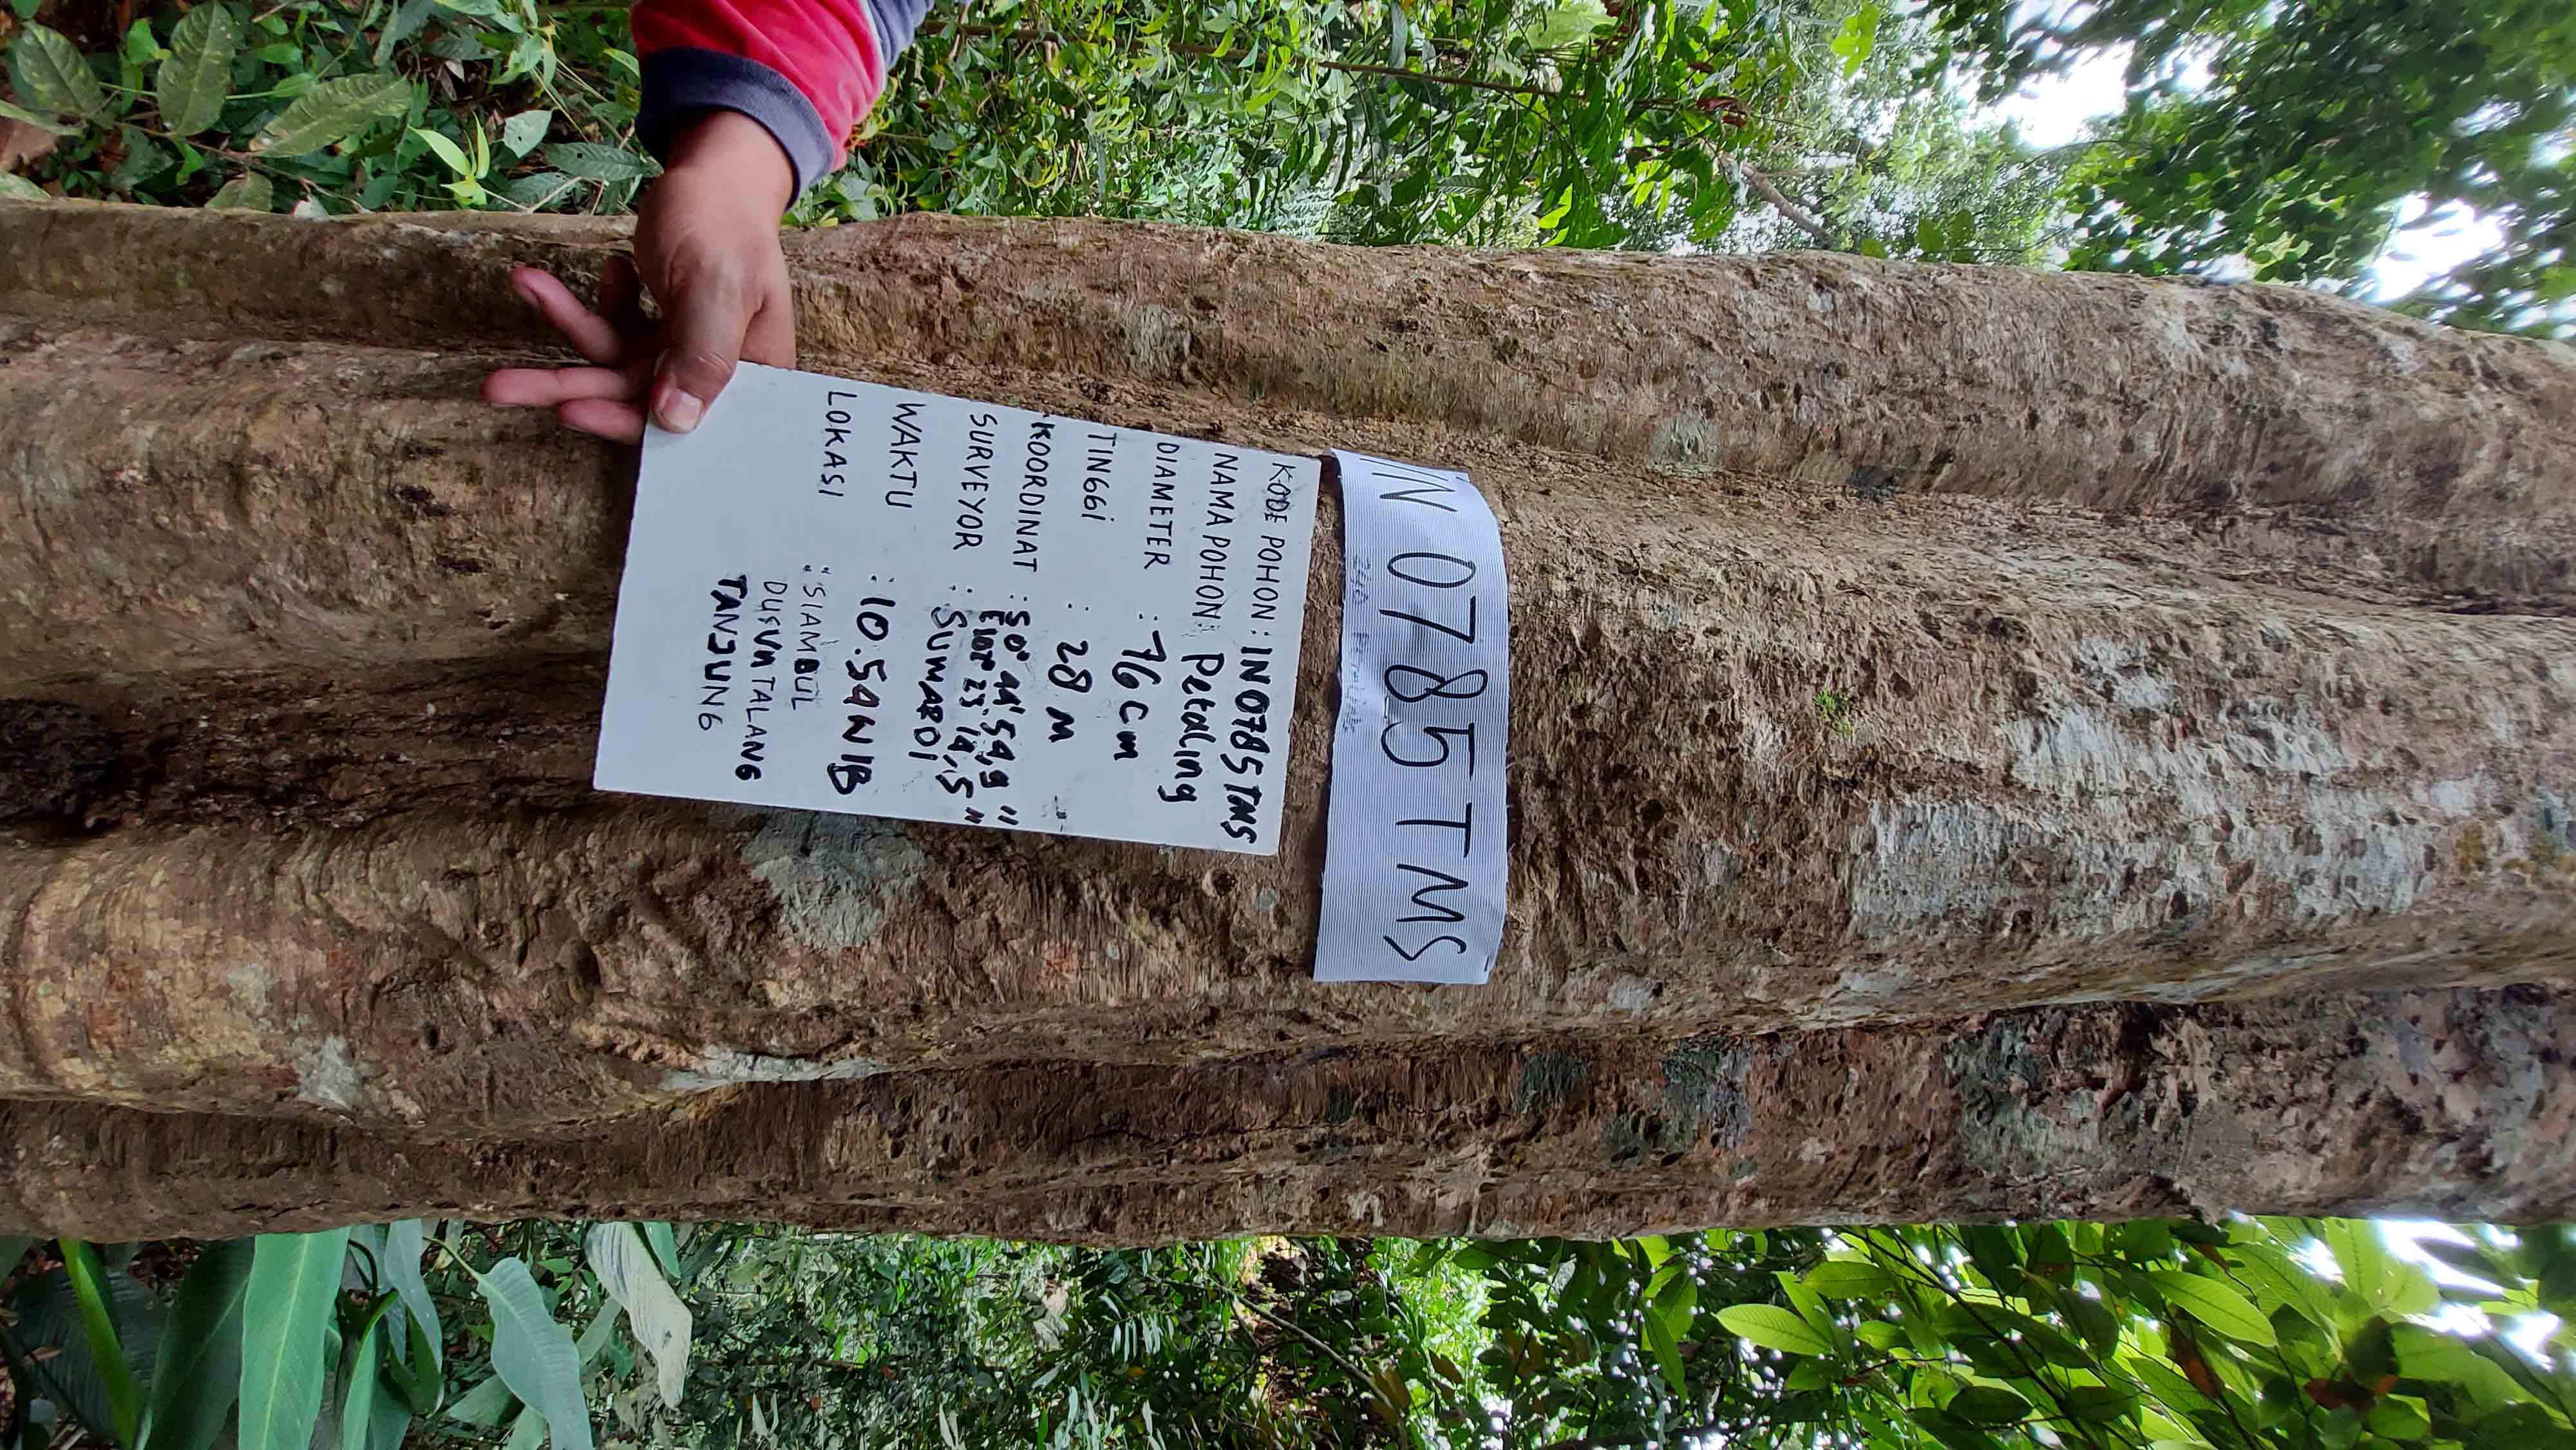 IN 0785 TMS
KODE POHON : IN 0785 TMS
NAMA POHON : Petaling
DIAMETER : 76 cm
TINGGi : 28 M
KOORDINAT : S0° 44' 54,9 "
E 102° 23' 14,5 "
SURVEYOR : SUMARDI
WAKTU : 10.54 WIB
LOKASI : SIAMBUL
DUSUN TALANG
TANJUNG